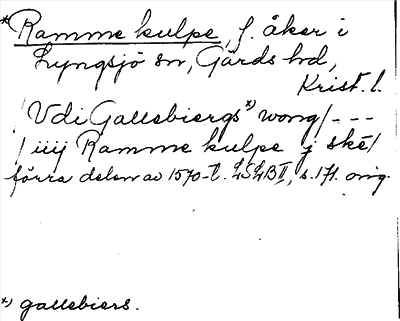 *Ramme kulpe, f. åker i
Lyngsjö sn, Gärds hd,
Krist. l.
/Vdi Gallebiergs*) wong/---
/iiij Ramme kulpe j ské/
förra delen av 1570-t. LSLB II, s. 171. orig.
*) gallebiers.